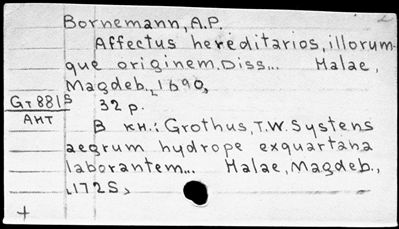 Bornemann, A.P.
Affectus hereditarios, illorum-
que originem. Diss... Halae,
Magdeb., 1690,
GT 881S
32 p.
АНТ
В кн.: Grothus, T.W. Systens
aegrum hydrope exquartana
laborantem... Halae, Magdeb.,
1725,
+